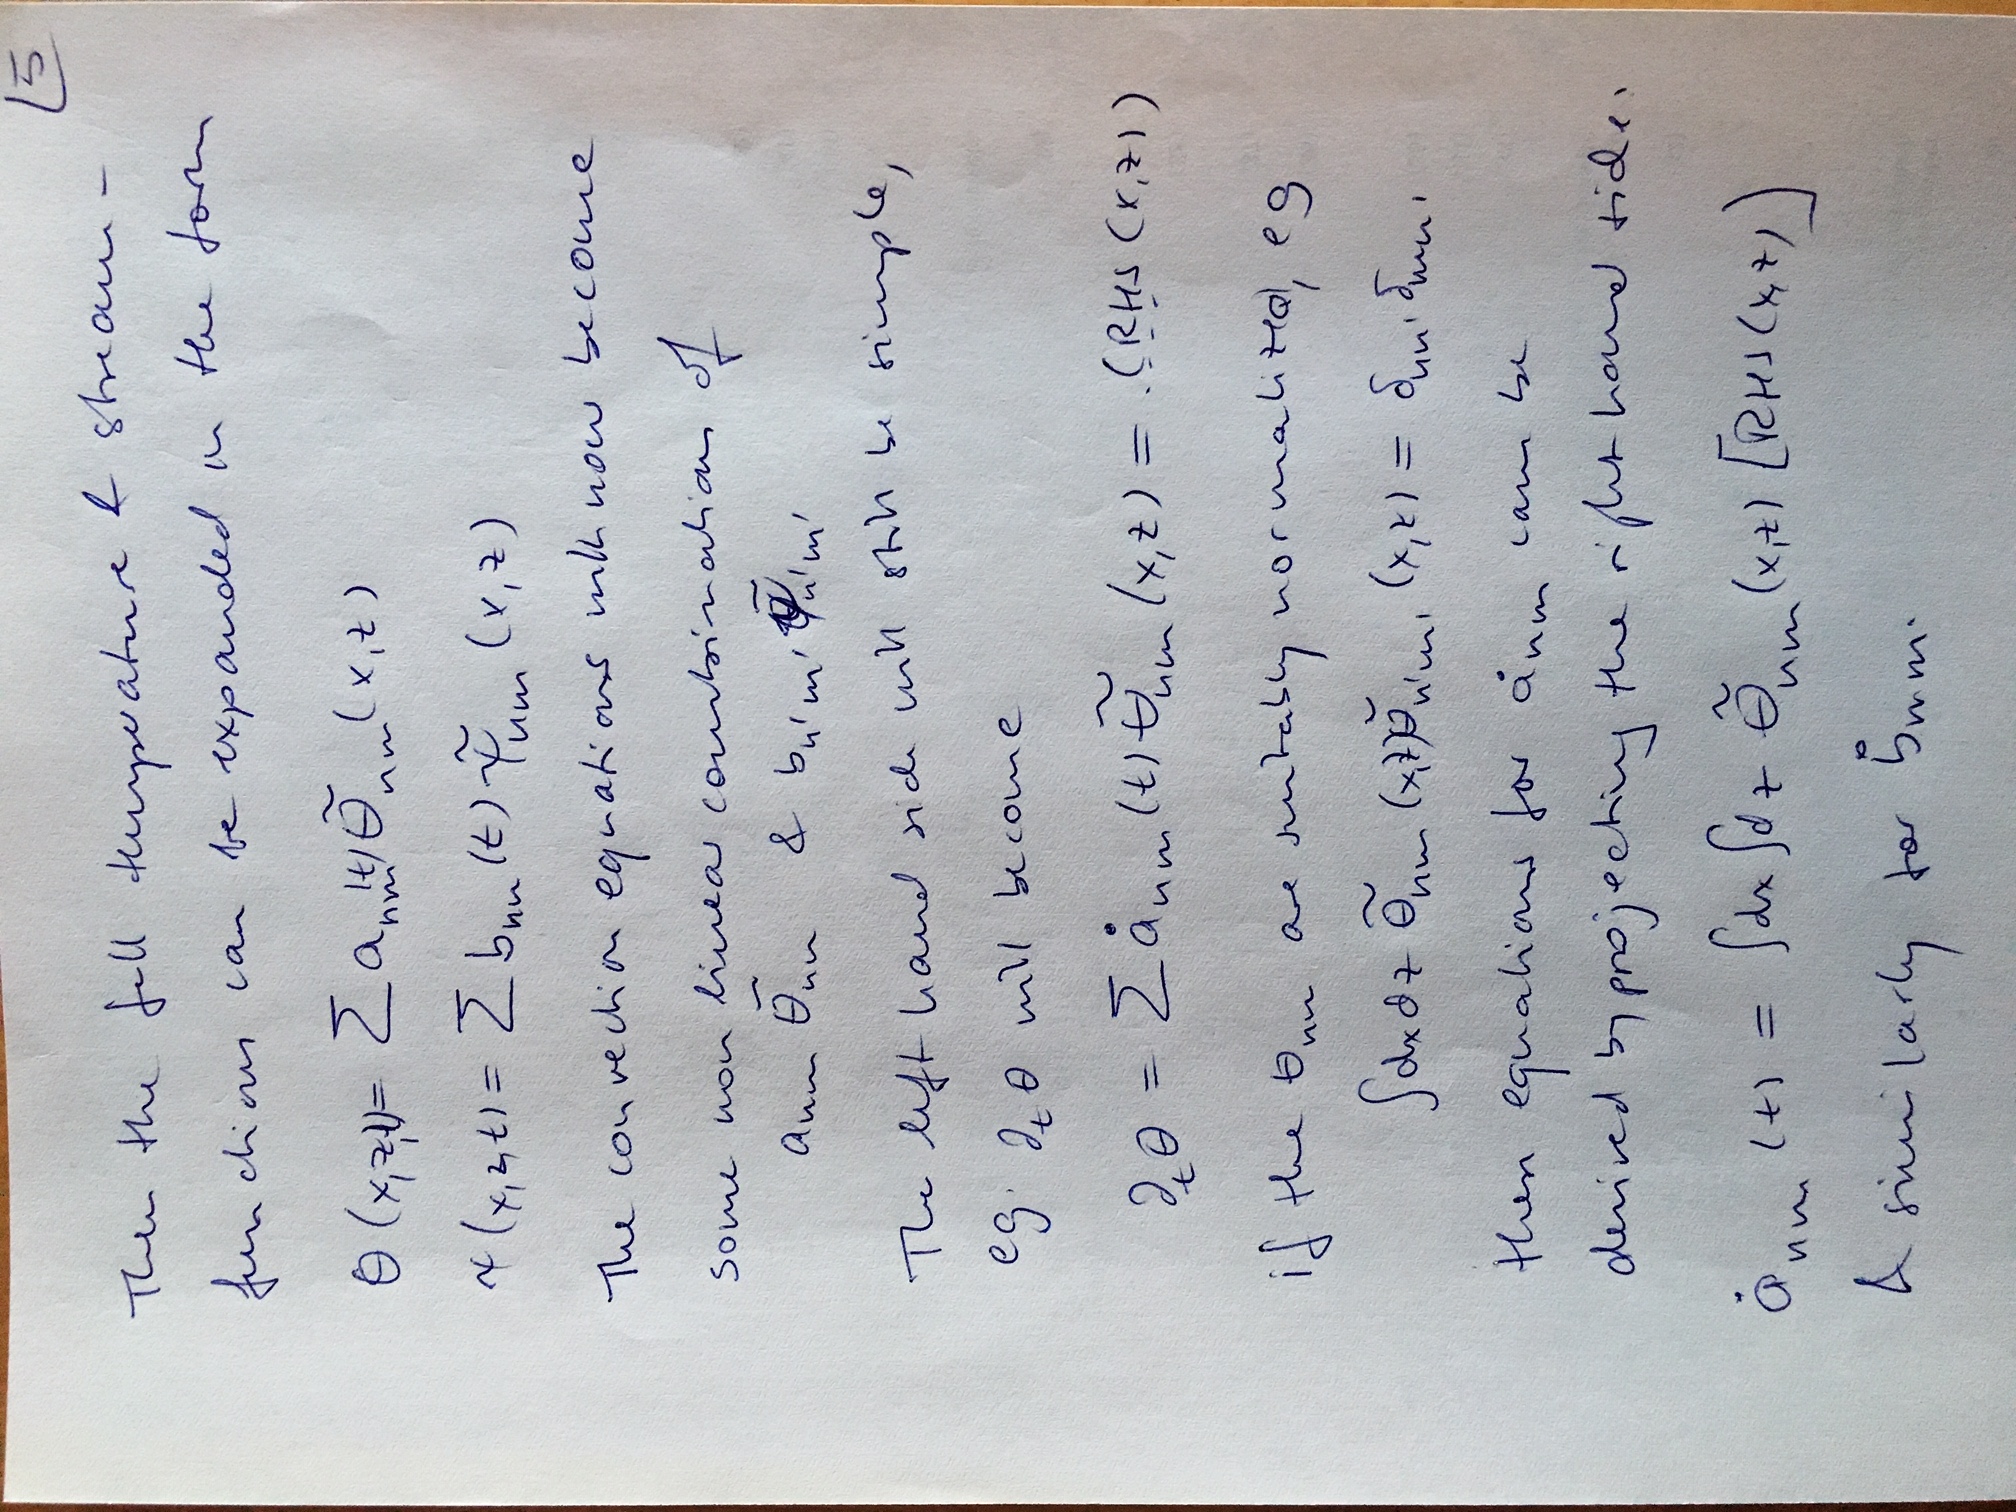 5
Then the full temperature & stream-
functions can be expanded in the form
θ(x,z,t) = Σ a_nm(t) θ̃_nm(x,z)
ψ(x,z,t) = Σ b_nm(t) ψ̃_nm(x,z)
The convection equations will now become
some non linear combination of
a_nm θ̃_nm & b_n'm' ψ̃_n'm'
The left hand side will still be simple,
eg. ∂_t θ will become
∂_t θ = Σ ȧ_nm(t) θ̃_nm(x,z) = (RHS(x,z))
if the θ_nm are suitably normalized, eg
∫dxdz θ̃_nm(x,z) θ̃_n'm'(x,z) = δ_nn' δ_mm'
then equations for ȧ_nm can be
derived by projecting the right hand side.
ȧ_nm(t) = ∫dx∫dz θ̃_nm(x,z) [RHS(x,z)]
& similarly for ḃ_nm.